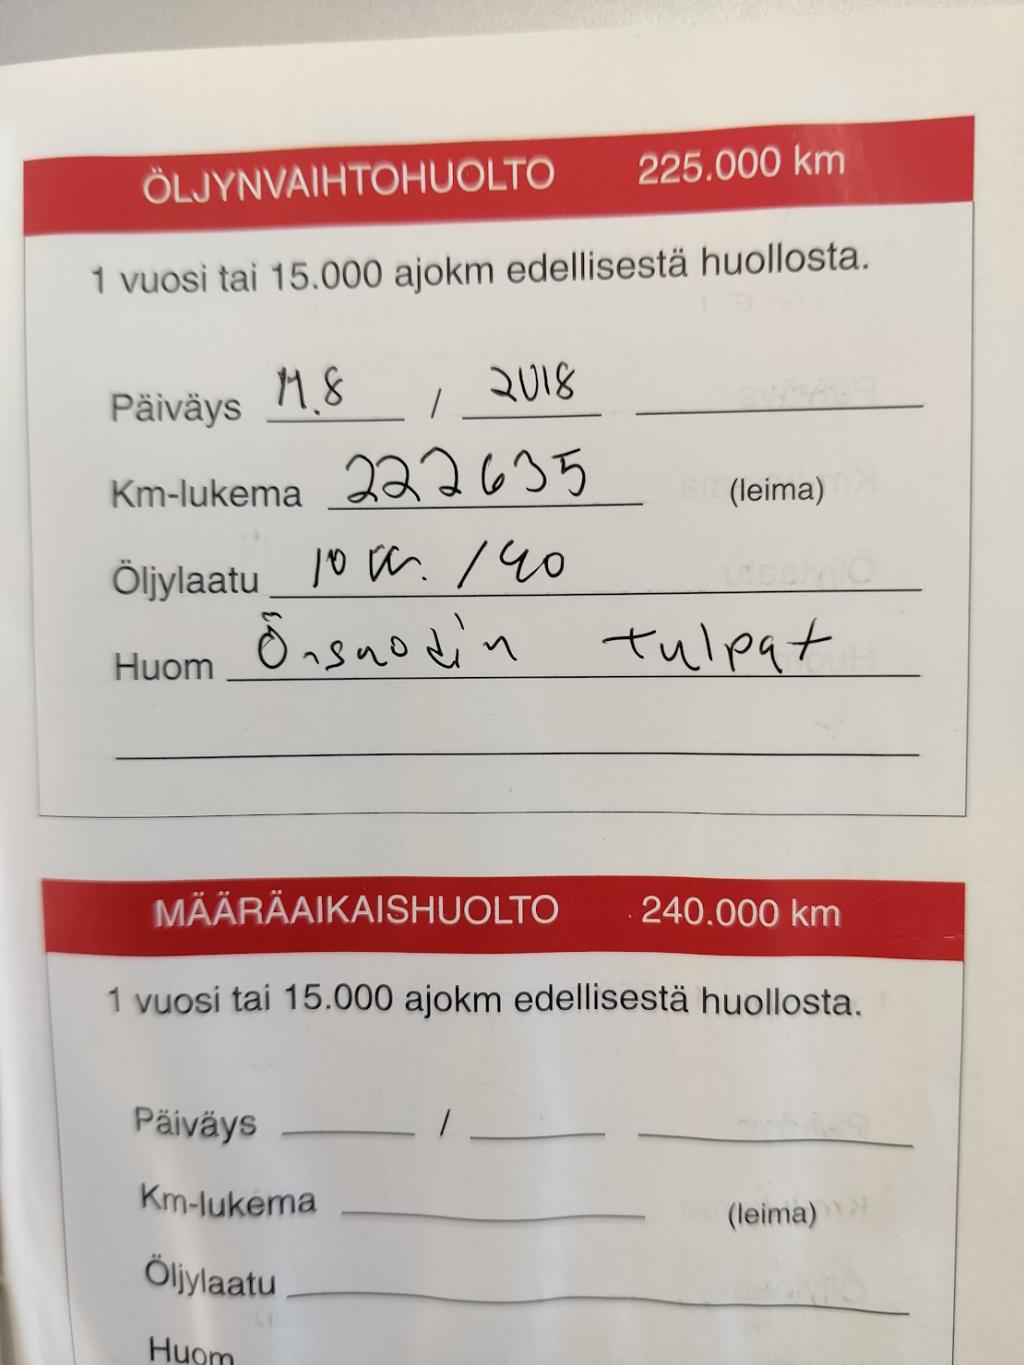 ÖLJYNVAIHTOHUOLTO 225.000 km
1 vuosi tai 15.000 ajokm edellisestä huollosta.
Päiväys / 2018
Km-lukema 222635 (leima)
Öljylaatu 10 /40
Huom tulpat
MÄÄRÄAIKAISHUOLTO 240.000 km
1 vuosi tai 15.000 ajokm edellisestä huollosta.
Päiväys /
Km-lukema (leima)
Öljylaatu
Huom